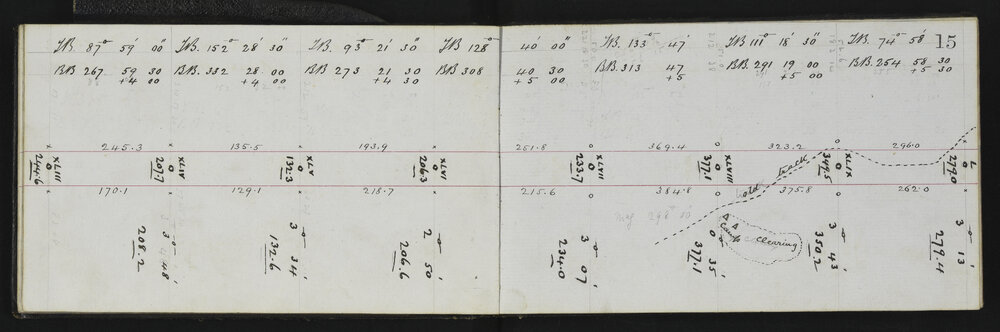 F.B. 87° 59' 00" F.B. 152° 28' 30" F.B. 93° 21' 30" F.B. 128° 40' 00" F.B. 133° 47' F.B. 111° 18' 30" F.B. 74° 58' 15
B.B. 267 59 30 B.B. 332 28 00 B.B. 273 21 30 B.B. 308 40 30 B.B. 313 47 B.B. 291 19 00 B.B. 254 58 30
+4 00 +4 00 +4 30 +5 00 +5 +5 00 +5 30
245.3 135.5 193.9 251.8 369.4 323.2 296.0
XLIII XLIV XLV XLVI XLVII XLVIII XLIX L
244.6 207.7 132.3 206.3 233.7 377.1 349.5 279.0
old track
170.1 129.1 218.7 215.6 384.8 375.8 262.0
mag 298° 10'
Camp
Clearing
3° 48' 3° 34' 2° 50' 3° 07' 0° 35' 3° 43' 3° 13'
208.2 132.6 206.6 234.0 377.1 350.2 279.4